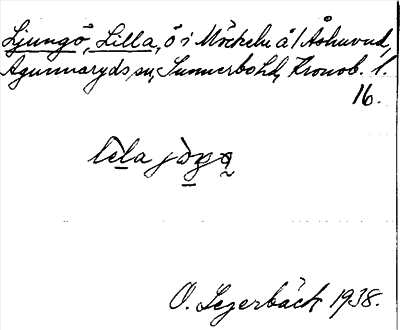 Ljungö, Lilla, ö i Möckeln å Åshuvud,
Agunnaryds sn, Sunnerbo hd, Kronob. l.
16.
lela
O. Segerbäck 1938.